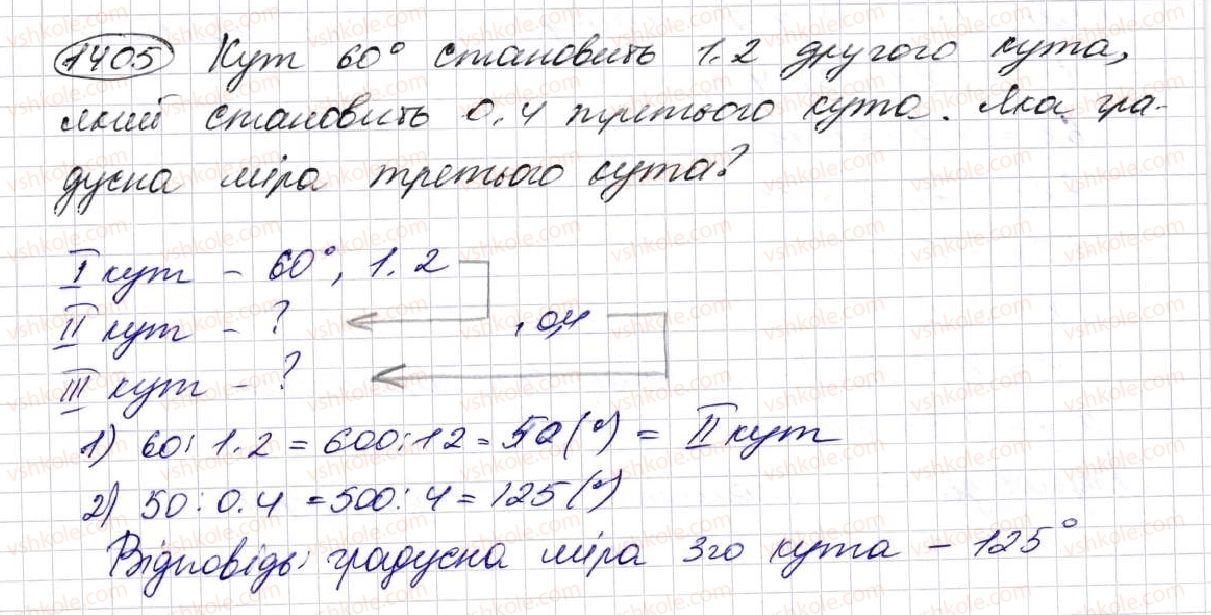 1405 Кут 60° становить 1.2 другого кута,
який становить 0.4 третього кута. Яка гра-
дусна міра третього кута?
I кут - 60°, 1.2
II кут - ? , 0,4
III кут - ?
1) 60 : 1.2 = 600 : 12 = 50 (°) = II кут
2) 50 : 0.4 = 500 : 4 = 125 (°)
Відповідь: градусна міра 3го кута - 125°